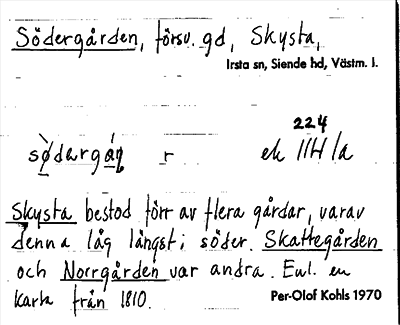 Södergården, försv. gd, Skysta,
Irsta sn, Siende hd, Västm. l.
224
södargáɳ r ek 11H 1a
Skysta bestod förr av flera gårdar, varav
denna låg längst i söder. Skattegården
och Norrgården var andra. Enl. en
karta från 1810.
Per-Olof Kohls 1970